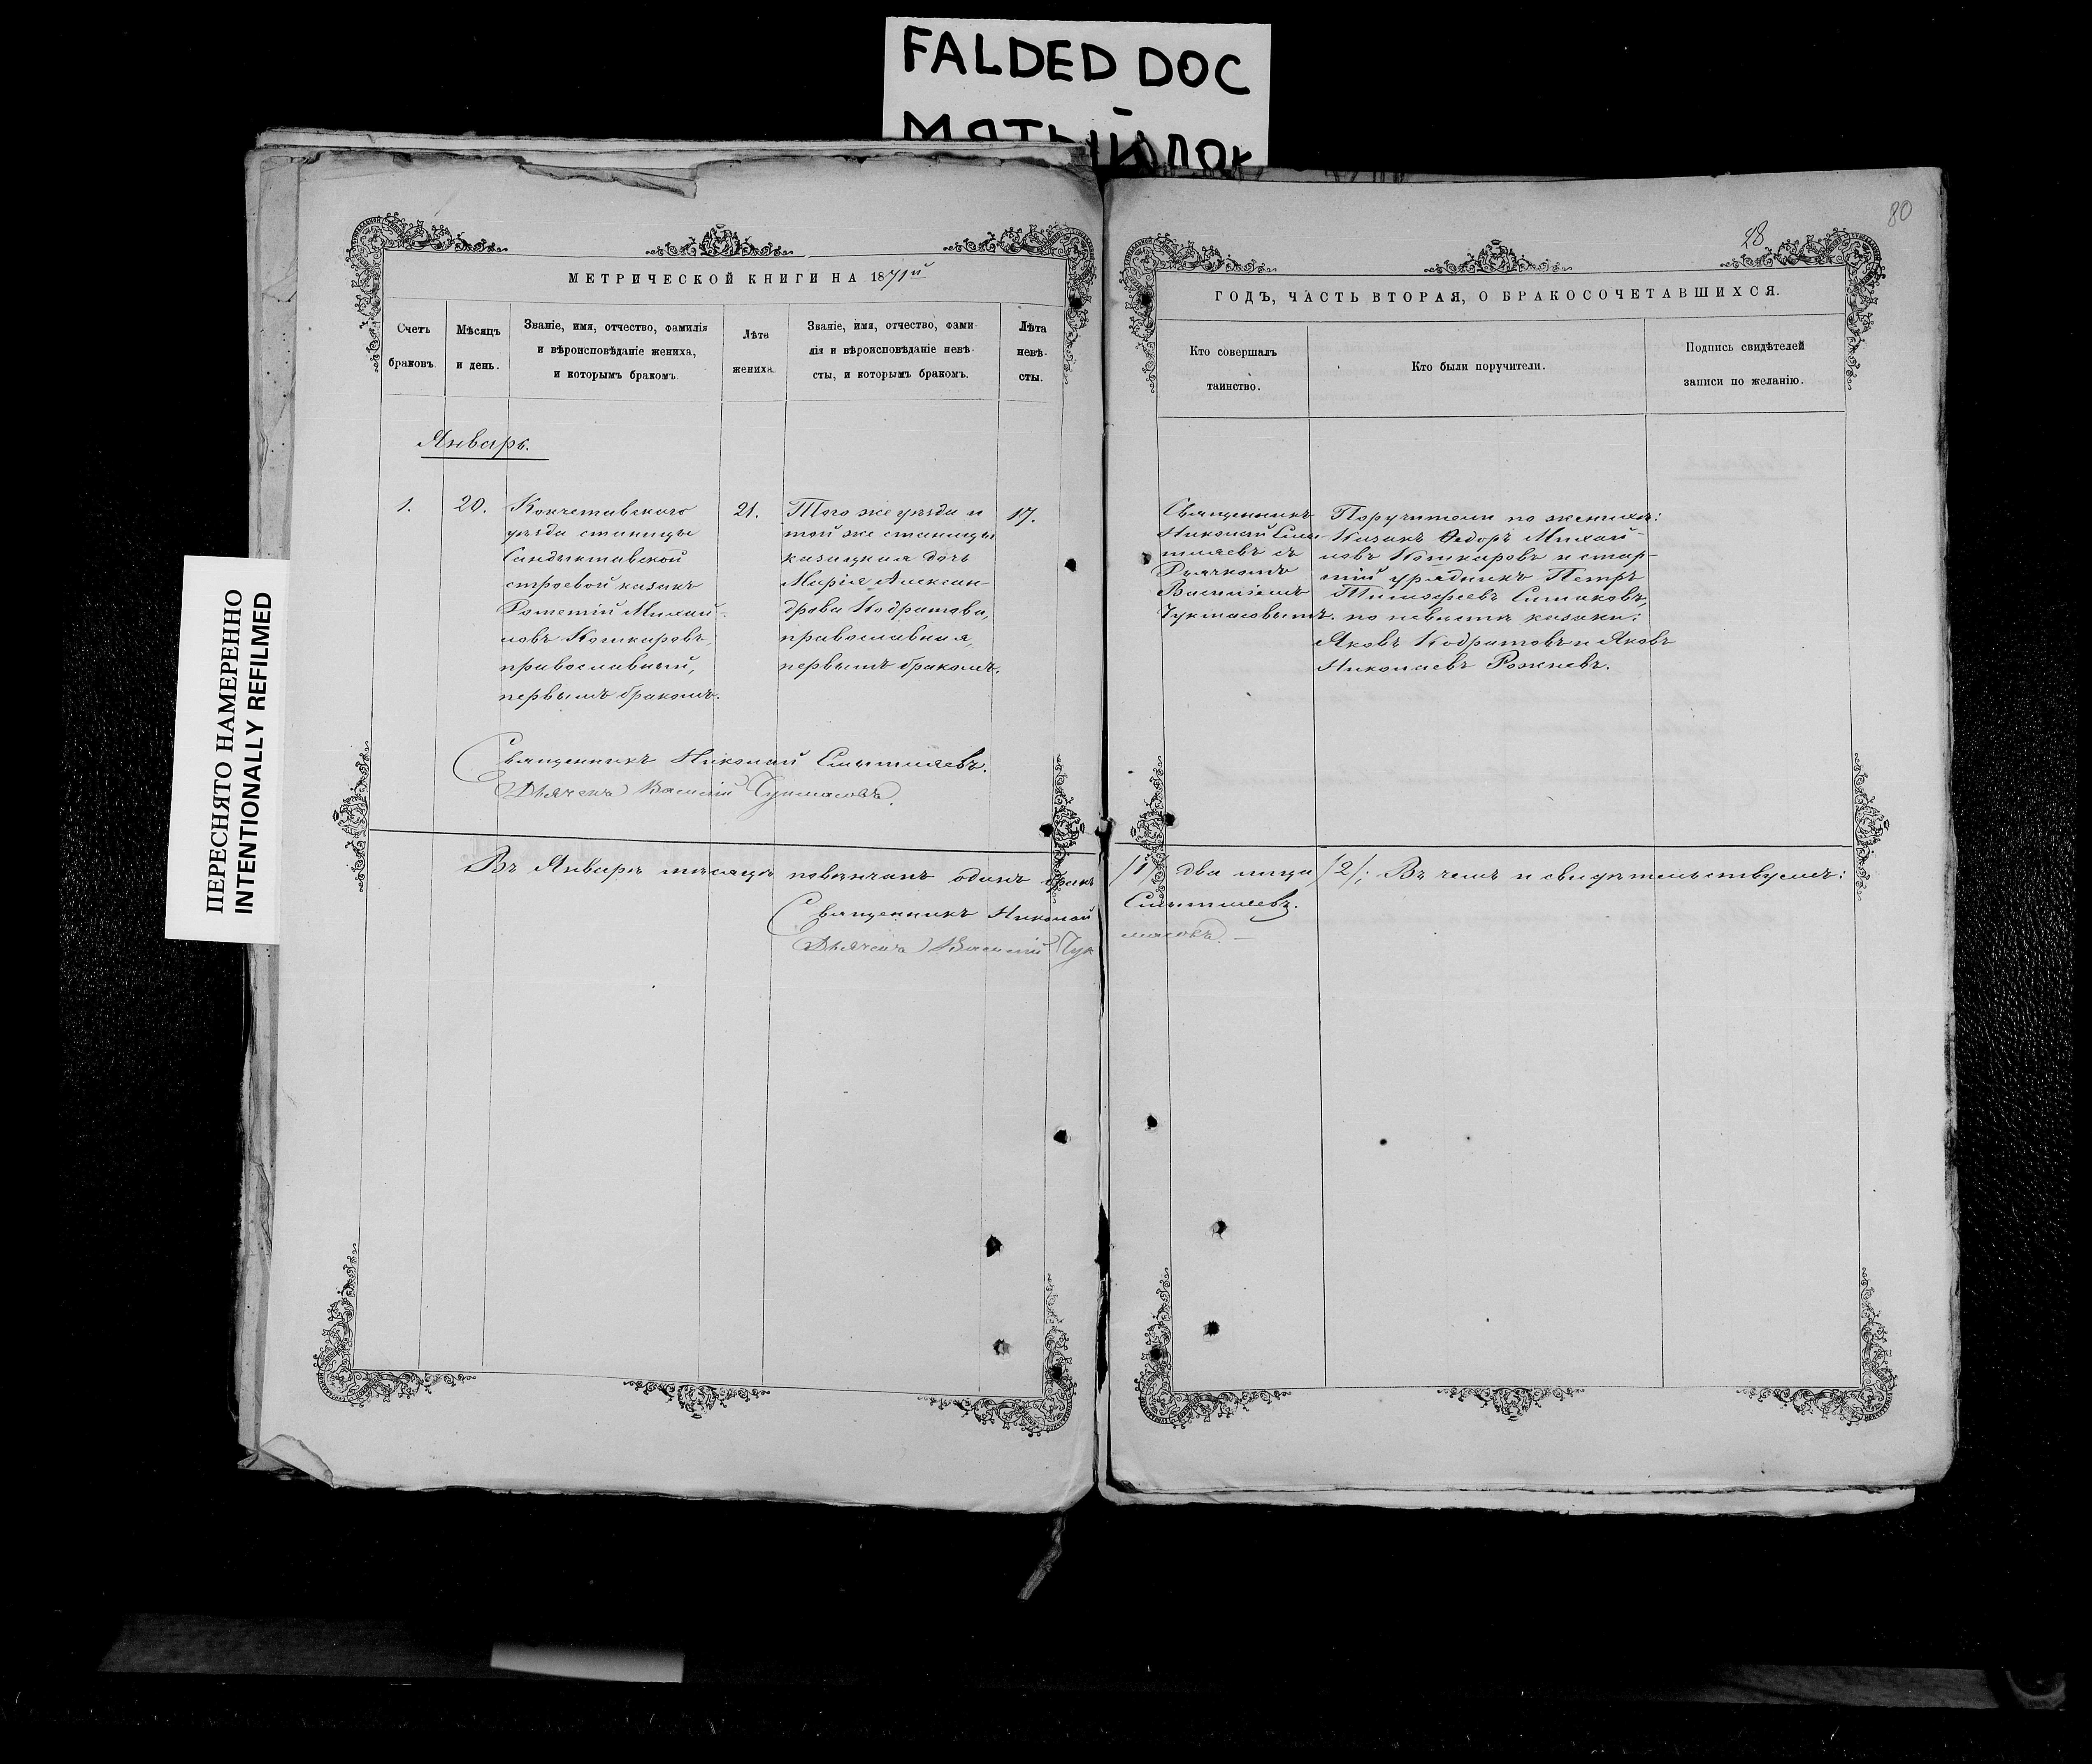 FALDED DOC
МЯТЫЙ ДОК
ПЕРЕСНЯТО НАМЕРЕННО
INTENTIONALLY REFILMED
МЕТРИЧЕСКОЙ КНИГИ НА 1871й
Счетъ браковъ.
Мѣсяцъ и день.
Званіе, имя, отчество, фамилія
и вѣроисповѣданіе жениха,
и которымъ бракомъ.
Лѣта жениха.
Званіе, имя, отчество, фами-
лія и вѣроисповѣданіе невѣ-
сты, и которымъ бракомъ.
Лѣта невѣ-
сты.
Январь.
1.
20.
Кокчетавскаго
уѣзда станицы
Сандыктавской
строевой казакъ
Михай-
ловъ Кошкаровъ,
православный,
первымъ бракомъ.
21.
Того же уѣзда и
той же станицы
казацкая дочь
Марія Алексан-
дрова Кодратова,
православная,
первымъ бракомъ.
17.
Священникъ Николай
Дьячекъ Василій Чукмасовъ.
Въ Январѣ мѣсяцѣ повѣнчанъ одинъ бракъ
Священникъ Николай
Дьячекъ Василій Чук
80
28
ГОДЪ, ЧАСТЬ ВТОРАЯ, О БРАКОСОЧЕТАВШИХСЯ.
Кто совершалъ
таинство.
Кто были поручители.
Подпись свидѣтелей
записи по желанію.
Священникъ
Николай
съ
Дьячкомъ
Василіемъ
Чукмасовымъ.
Поручители по женихѣ:
Казакъ Ѳедоръ Михай-
ловъ Кошкаровъ и стар-
шій урядникъ Петръ
Тимофеевъ Симаковъ,
по невѣстѣ казаки:
Яковъ Кодратовъ и Яковъ
Николаевъ Рожневъ.
/1/ два лица /2/; Въ чемъ и свидѣтельствуемъ:
масовъ. —